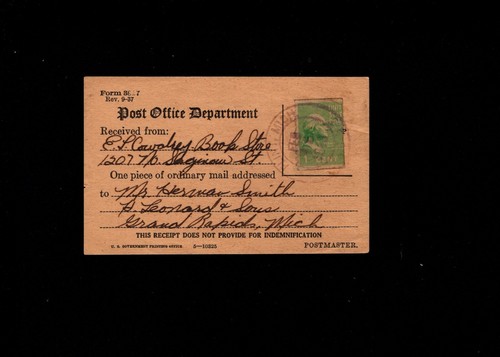 Form 3817
Rev. 9-37
Post Office Department
Received from:
E. L. Cavalrey Book Store
1207 No. Saginaw St.
One piece of ordinary mail addressed
to Mr. Herman Smith
P. Leonard & Sons
Grand Rapids, Mich
THIS RECEIPT DOES NOT PROVIDE FOR INDEMNIFICATION
U. S. GOVERNMENT PRINTING OFFICE 5—10325
POSTMASTER.